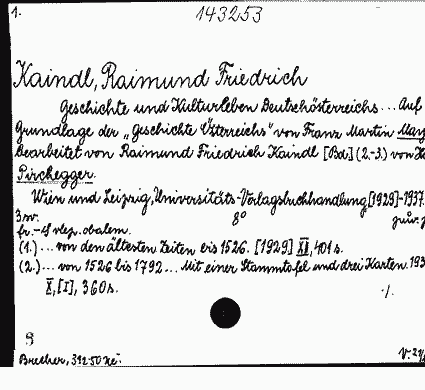 1.
143253
Kaindl, Raimund Friedrich
Geschichte und Kulturleben Deutschösterreichs ... Auf
Grundlage der „Geschichte Österreichs" von Franz Martin May
Bearbeitet von Raimund Friedrich Kaindl [Bd.] (2.-3.) von
Pirchegger.
Wien und Leipzig, Universitäts-Verlagsbuchhandlung, [1929]-1937.
3 sv. 8°
fr.-
(1.) ... von den ältesten Zeiten bis 1526. [1929] XI, 401 s.
(2.) ... von 1526 bis 1792 ... Mit einer Stammtafel und drei Karten. 193
X, [I], 360 s. ./.
9